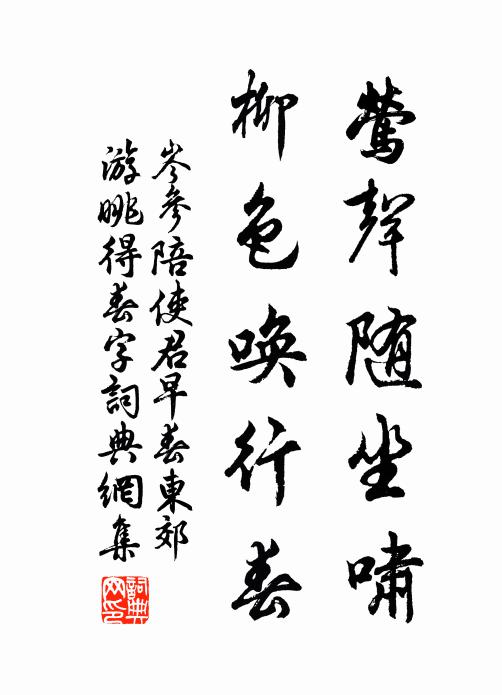 鶯聲随坐嘯
柳色唤行春
岑參陪使君早春東郊
游眺得春字詞典網集
詞典网印